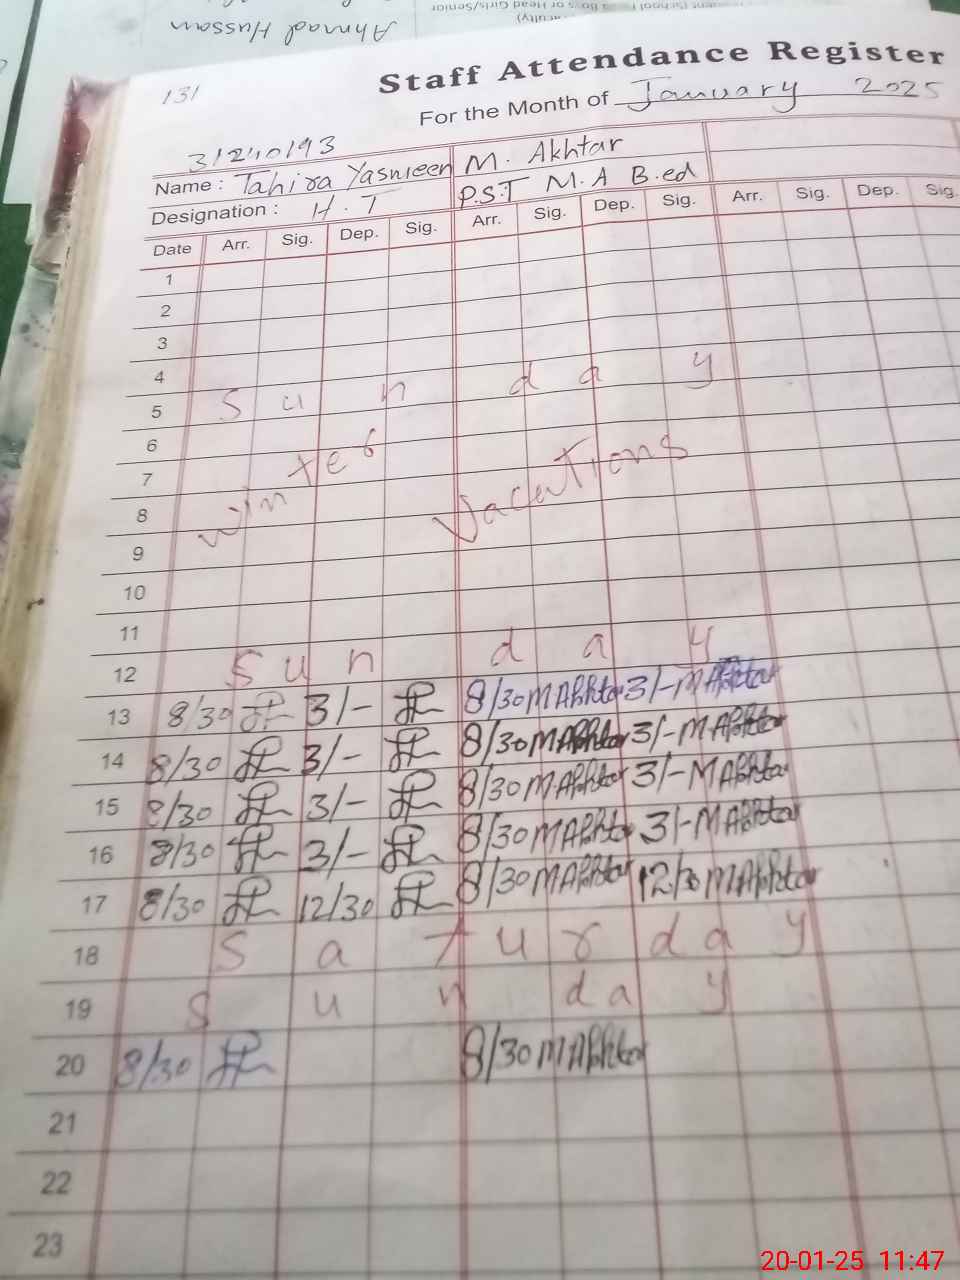 Ahmad Hussain
131
Staff Attendance Register
For the Month of January 2025
31240193
Name : Tahira Yasmeen M. Akhtar
Designation : H.T P.S.T M.A B.ed
Date Arr. Sig. Dep. Sig. Arr. Sig. Dep. Sig. Arr. Sig. Dep. Sig.
1
2
3
4
5 Sunday
6
7 winter vacations
8
9
10
11
12 Sunday
13 8/30 3/- 8/30 M Akhtar 3/- M Akhtar
14 8/30 3/- 8/30 M Akhtar 3/- M Akhtar
15 8/30 3/- 8/30 M Akhtar 3/- M Akhtar
16 8/30 3/- 8/30 M Akhtar 3/- M Akhtar
17 8/30 12/30 8/30 M Akhtar 12/30 M Akhtar
18 Saturday
19 Sunday
20 8/30 8/30 M Akhtar
21
22
23
20-01-25 11:47